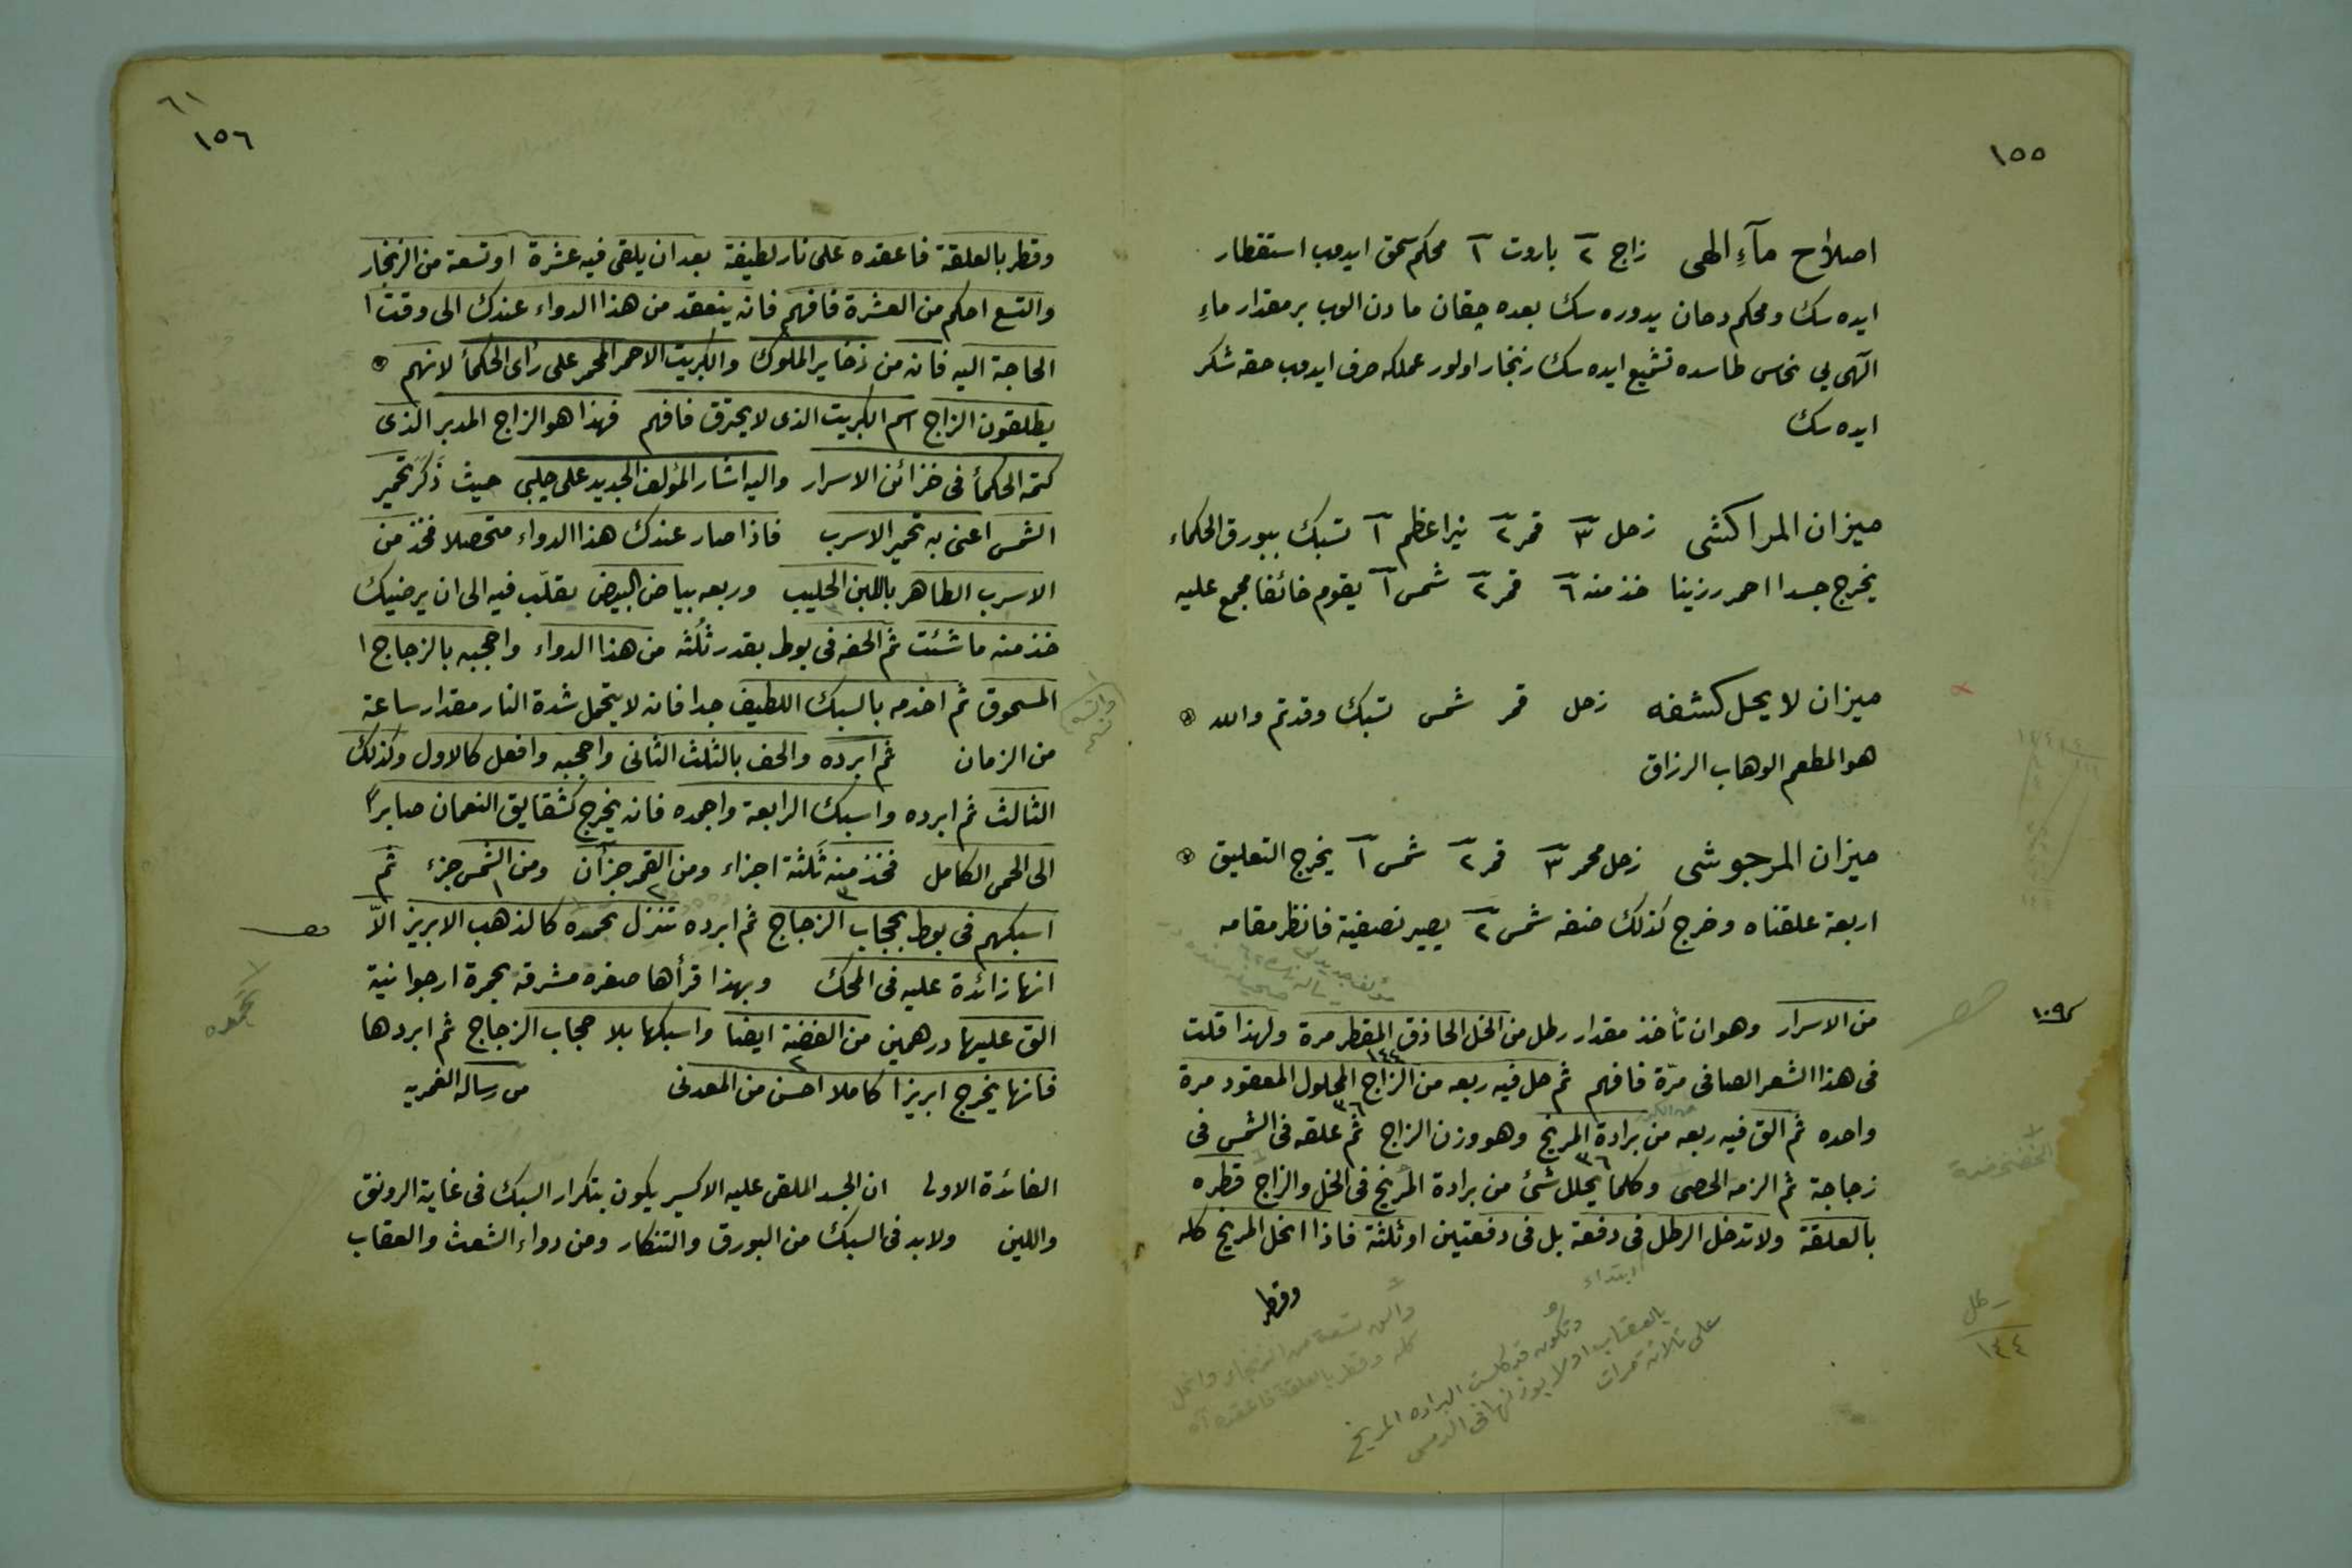 ١٥٥
اصلاح مآءِ الهى زاج ٢ باروت ١ محكم سحق ايدوب استقطار
ايده سك ومحكم دخان يدوره سك بعده چقان مادن الوب بر مقدار ماءِ
الٓهى يى نحاس طاسده تشميع ايده سك زنجار اولور عملكه صرف ايدوب حقه شكر
ايده سك
ميزان المراكشى زحل ٣ قمر ٢ نيراعظم ١ تسبك ببورق الحكماء
يخرج جسدا احمر رزينا خذ منه ٦ قمر ٢ شمس ١ يقوم خائفا مجمع عليه
ميزان لا يحل كشفه زحل قمر شمس تسبك وقد تم والله
هو المطعم الوهاب الرزاق
ميزان المرجوشى زحل محمر ٣ قمر ٢ شمس ١ يخرج التعليق
اربعة علقناه وخرج كذلك ضفه شمس ٢ يصير نصفية فانظر مقامه
من الاسرار وهو ان تأخذ مقدار رطل من الخل الحاذق المقطر مرة ولهذا قلت
١٠٩
فى هذا الشعر الصافى مرّة فافهم ثم حل فيه ربعه من الزاج المحلول المعقود مرة
١٤٤
واحده ثم الق فيه ربعه من برادة المريخ وهو وزن الزاج ثم علقه فى الشمس فى
٣٦
زجاجة ثم الزمه الحصى وكلما يحلل شئ من برادة المريخ فى الخل والزاج قطره
٣٦
بالعلقة ولا تدخل الرطل فى دفعة بل فى دفعتين او ثلثة فاذا انحل المريخ كله
وقطر
ابتداء
وتكون قد كلست البراده المريخ
بالعقاب اولا بوزنها فى الشمس
على ثلاثة مرات
والق تسعة من الزنجار وانحل
كله وقطر بالعلقة فاعقده اه
رطل
١٤٤
٦١
١٥٦
وقطر بالعلقة فاعقده على نار لطيفة بعد ان يلقى فيه عشرة او تسعة من الزنجار
والتسع احكم من العشرة فافهم فانه ينعقد من هذا الدواء عندك الى وقت ا
الحاجة اليه فانه من ذخاير الملوك والكبريت الاحمر المحمر على رأى الحكمأ لانهم
يطلقون الزاج اسم الكبريت الذى لا يحترق فافهم فهذا هو الزاج المدبر الذى
كتمه الحكمأ فى خزائن الاسرار واليه اشار المؤلف الجديد على چلبى حيث ذَكَرَ تحمير
الشمس اعنى به تحمير الاسرب فاذا صار عندك هذا الدواء متحصلا فخذ من
الاسرب الطاهر باللبن الحليب وربعه بياض البيض تقلّب فيه الى ان يرضيك
خذ منه ما شئت ثم الحفه فى بوط بقدر ثُلُثه من هذا الدواء واحجبه بالزجاج ا
المسحوق ثم اخدمه بالسبك اللطيف جدا فانه لا يتحمل شدة النار مقدار ساعة
من الزمان ثم ابرده والحف بالثلث الثانى واحجبه وافعل كالاول وكذلك
الثالث ثم ابرده واسبك الرابعة واجمده فانه يخرج كشقايق النعمان صابرًا
الى الحمى الكامل فخذ منه ثَلثة اجزاء ومن القمر جزآن ومن الشمس جزء ثم
٣ ٢ ١
اسبكهم فى بوط بحجاب الزجاج ثم ابرده تنزل بحمده كالذهب الابريز الاّ
انها زائدة عليه فى المحك وبهذا قرأها صفره مشرقه بحمرة ارجوانية
الق عليها درهمين من الفضة ايضا واسبكها بلا حجاب الزجاج ثم ابردها
٢
فانها يخرج ابريزا كاملا احسن من المعدنى من رساله القمريه
الفائدة الاولى ان الجسد الملقى عليه الاكسير يكون بتكرار السبك فى غاية الرونق
واللين ولا بد فى السبك من البورق والتنكار ومن دواء الشعث والعقاب